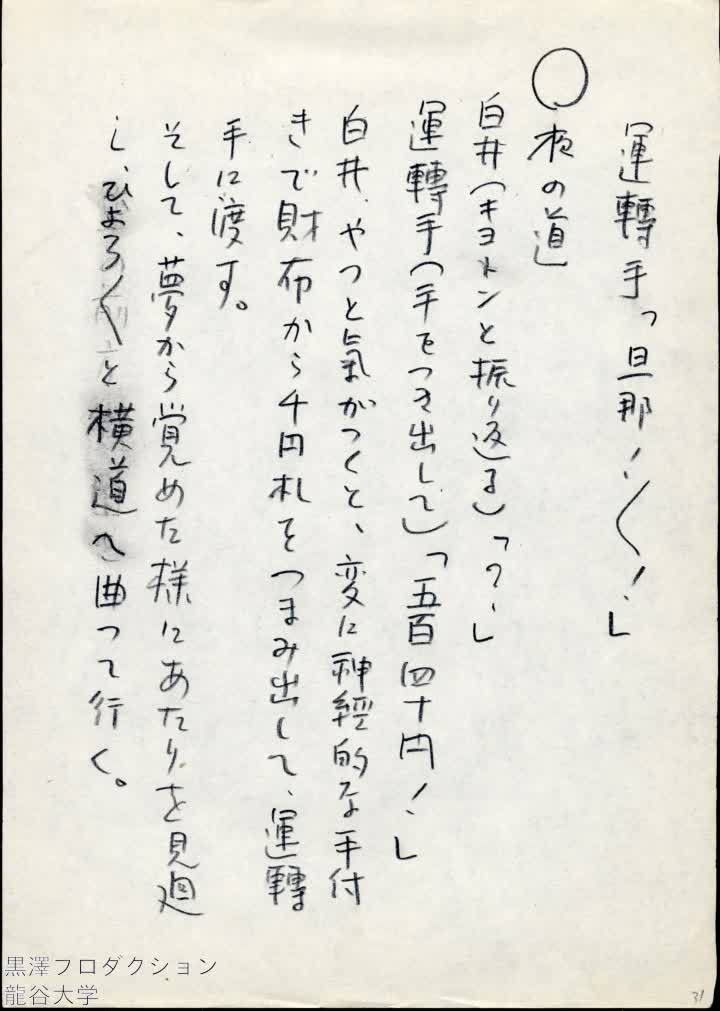 運轉手「旦那！〱！」
○夜の道
白井（キョトンと振り返る）「？」
運轉手（手をつき出して）「五百四十円！」
白井、やつと氣がつくと、変に神經的な手付
きで財布から千円札をつまみ出して、運轉
手に渡す。
そして、夢から覚めた様にあたりを見廻
し、ひょろ〱と横道へ曲つて行く。
31
黒澤プロダクション
龍谷大学